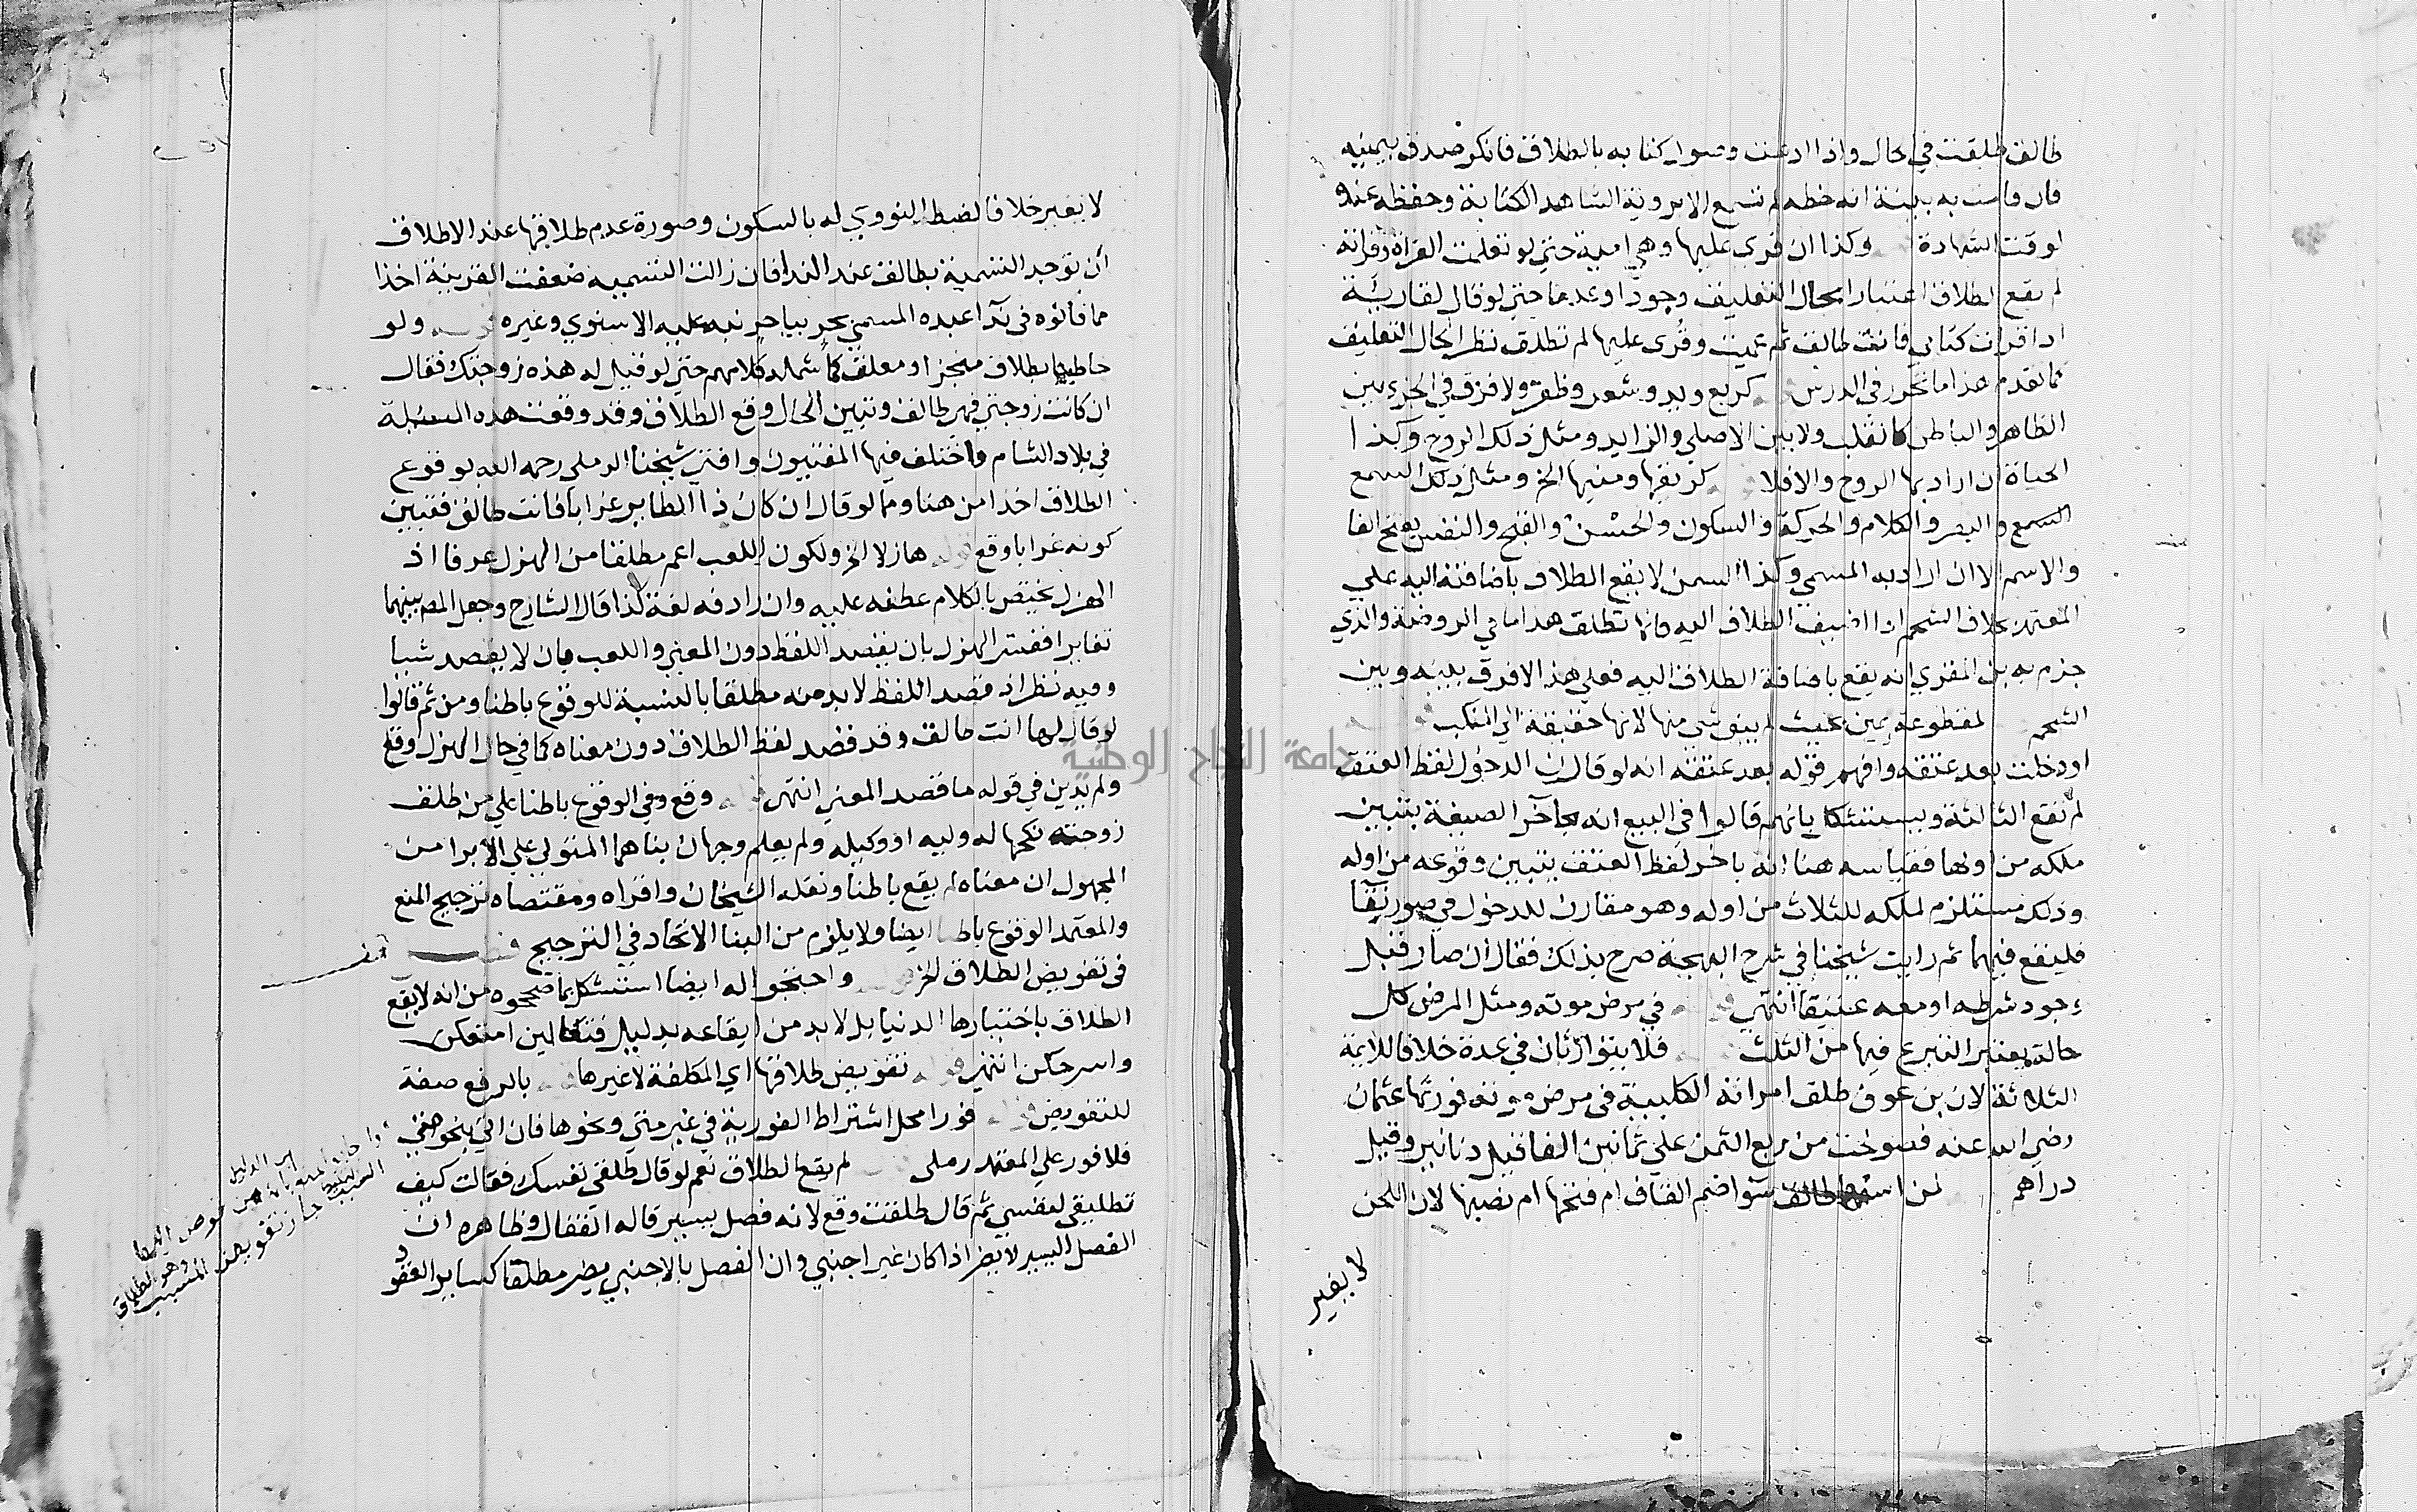 طالق طلقت في الحال واذا ادعت وصول كتابه بالطلاق فانكر صدق بيمينه
فان قامت به بينة انه خطه لم تسمع الا بروية الشاهد الكتابة وحفظه عنده
لوقت الشهادة وكذا ان قرى عليها وهي امية حتى لو تعلمت القراة وقراته
لم يقع الطلاق اعتبارا بحال التعليق وجودا وعدما حتى لو قال لقارئة
اذا قرات كتابي فانت طالق ثم عميت وقُرى عليها لم تطلق نظرا لحال التعليق
كما تقدم هذا ما تحرر في الدرس كربع ويد وشعر وظفر ولا فرق في الجزء بين
الظاهر والباطن كالقلب ولا بين الاصلي والزايد ومثل ذلك الروح وكذا
الحياة ان اراد بها الروح والا فلا كريقها ومنيها الخ ومثل ذلك السمع
السمع والبصر والكلام والحركة والسكون والحُسْن والقبح والنفس بفتح الفا
والاسم الا ان اراد به المسمى وكذا السمن لا يقع الطلاق باضافته اليه على
المعتمد بخلاف الشحم اذا اضيف الطلاق اليه فانها تطلق هذا ما في الروضة والذي
جزم به بن المقري انه يقع باضافة الطلاق اليه فعلى هذا لا فرق بينه وبين
الشحم لمقطوعة يمين بحيث لم يبق شى منها لانها حقيقة الى المنكب
او دخلت بعد عتقه وافهم قوله بعد عتقه انه لو قارن الدخول لفظ العتق
لم تقع الثالثة ويستشكل بانهم قالوا في البيع انه باخر الصيغة يتبين
ملكه من اولها فقياسه هنا انه باخر لفظ العتق يتبين وقوعه من اوله
وذلك مستلزم لملكه للثلاث من اوله وهو مقارن للدخول في صورتنا
فليقع فيهما ثم رايت شيخنا في شرح البهجة صرح بذلك فقال ان صار قبل
وجود شرطه او معه عتيقا انتهى في مرض موته ومثل المرض كل
حالة يعتبر التبرع فيها من الثلث فلا يتوارثان في عدة خلافا للايمة
الثلاثة لان بن عوف طلق امراته الكلبية في مرض موته فورثها عثمان
رضى الله عنه فصولحت من ربع الثمن على ثمانين الفا قيل دنانير وقيل
دراهم لمن اسمها طالق سوا ضم القاف ام فتحها ام نصبها لان اللحن
لا يغير
لا يغير خلافا لضبط النووي له بالسكون وصورة عدم طلاقها عند الاطلاق
أن توجد التسمية بطالق عند الندا فان زالت التسميه ضعفت القرينة اخذا
مما قالوه في ندآ عبده المسمى بحر بيا حر نبه عليه الاسنوي وغيره ولو
خاطبها بطلاق منجز او معلق كما شمله كلامهم حتى لو قيل له هذه زوجتك فقال
ان كانت زوجتي فهي طالق وتبين الحال وقع الطلاق وقد وقعت هذه المسئلة
في بلاد الشام واختلف فيها المفتيون وافتى شيخنا الرملي رحمه الله بوقوع
الطلاق اخذا من هنا ومما لو قال ان كان ذا الطاير غرابا فانت طالق فتبين
كونه غرابا وقع قوله هازلا الخ ولكون اللعب اعم مطلقا من الهزل عرفا اذ
الهزل يختص بالكلام عطفه عليه وان رادفه لغة كذا قال الشارح وجعل المص بينهما
تغايرا ففسر الهزل بان يقصد اللفظ دون المعنى واللعب بان لا يقصد شيا
وفيه نظر اذ قصد اللفظ لا بد منه مطلقا بالنسبة للوقوع باطنا ومن ثم قالوا
لو قال لها انت طالق وقد قصد لفظ الطلاق دون معناه كما في حال الهزل وقع
ولم يدين في قوله ما قصد المعنى انتهى وقع وفي الوقوع باطنا على من طلق
زوجته نكحها له وليه او وكيله ولم يعلم وجهان بناهما المتولي على الابرا من
المجهول ان معناه لم يقع باطنا ونقله الشيخان واقراه ومقتضاه ترجيح المنع
والمعتمد الوقوع باطنا ايضا ولا يلزم من البنا الاتحاد في الترجيح
في تفويض الطلاق الخ واحتجوا له ايضا استشكل بما صححوه من انه لا يقع
الطلاق باختيارها الدنيا بل لا بد من ايقاعه بدليل فتعالين امتعكن
واسرحكن انتهى قوله تفويض طلاقها اي المكلفة لا غيرها بالرفع صفة
للتفويض فورا محل اشتراط الفورية في غير متى ونحوها فان اتى بنحو متى
فلا فور على المعتمد رملى لم يقع الطلاق نعم لو قال طلقى نفسك فقالت كيف
تطليقى لنفسي ثم قال طلقت وقع لانه فصل يسير قاله القفال وظاهره ان
الفصل اليسير لا يضر اذا كان غير اجنبي وان الفصل بالاجنبي يضر مطلقا كساير العقود
جامعة النجاح الوطنية